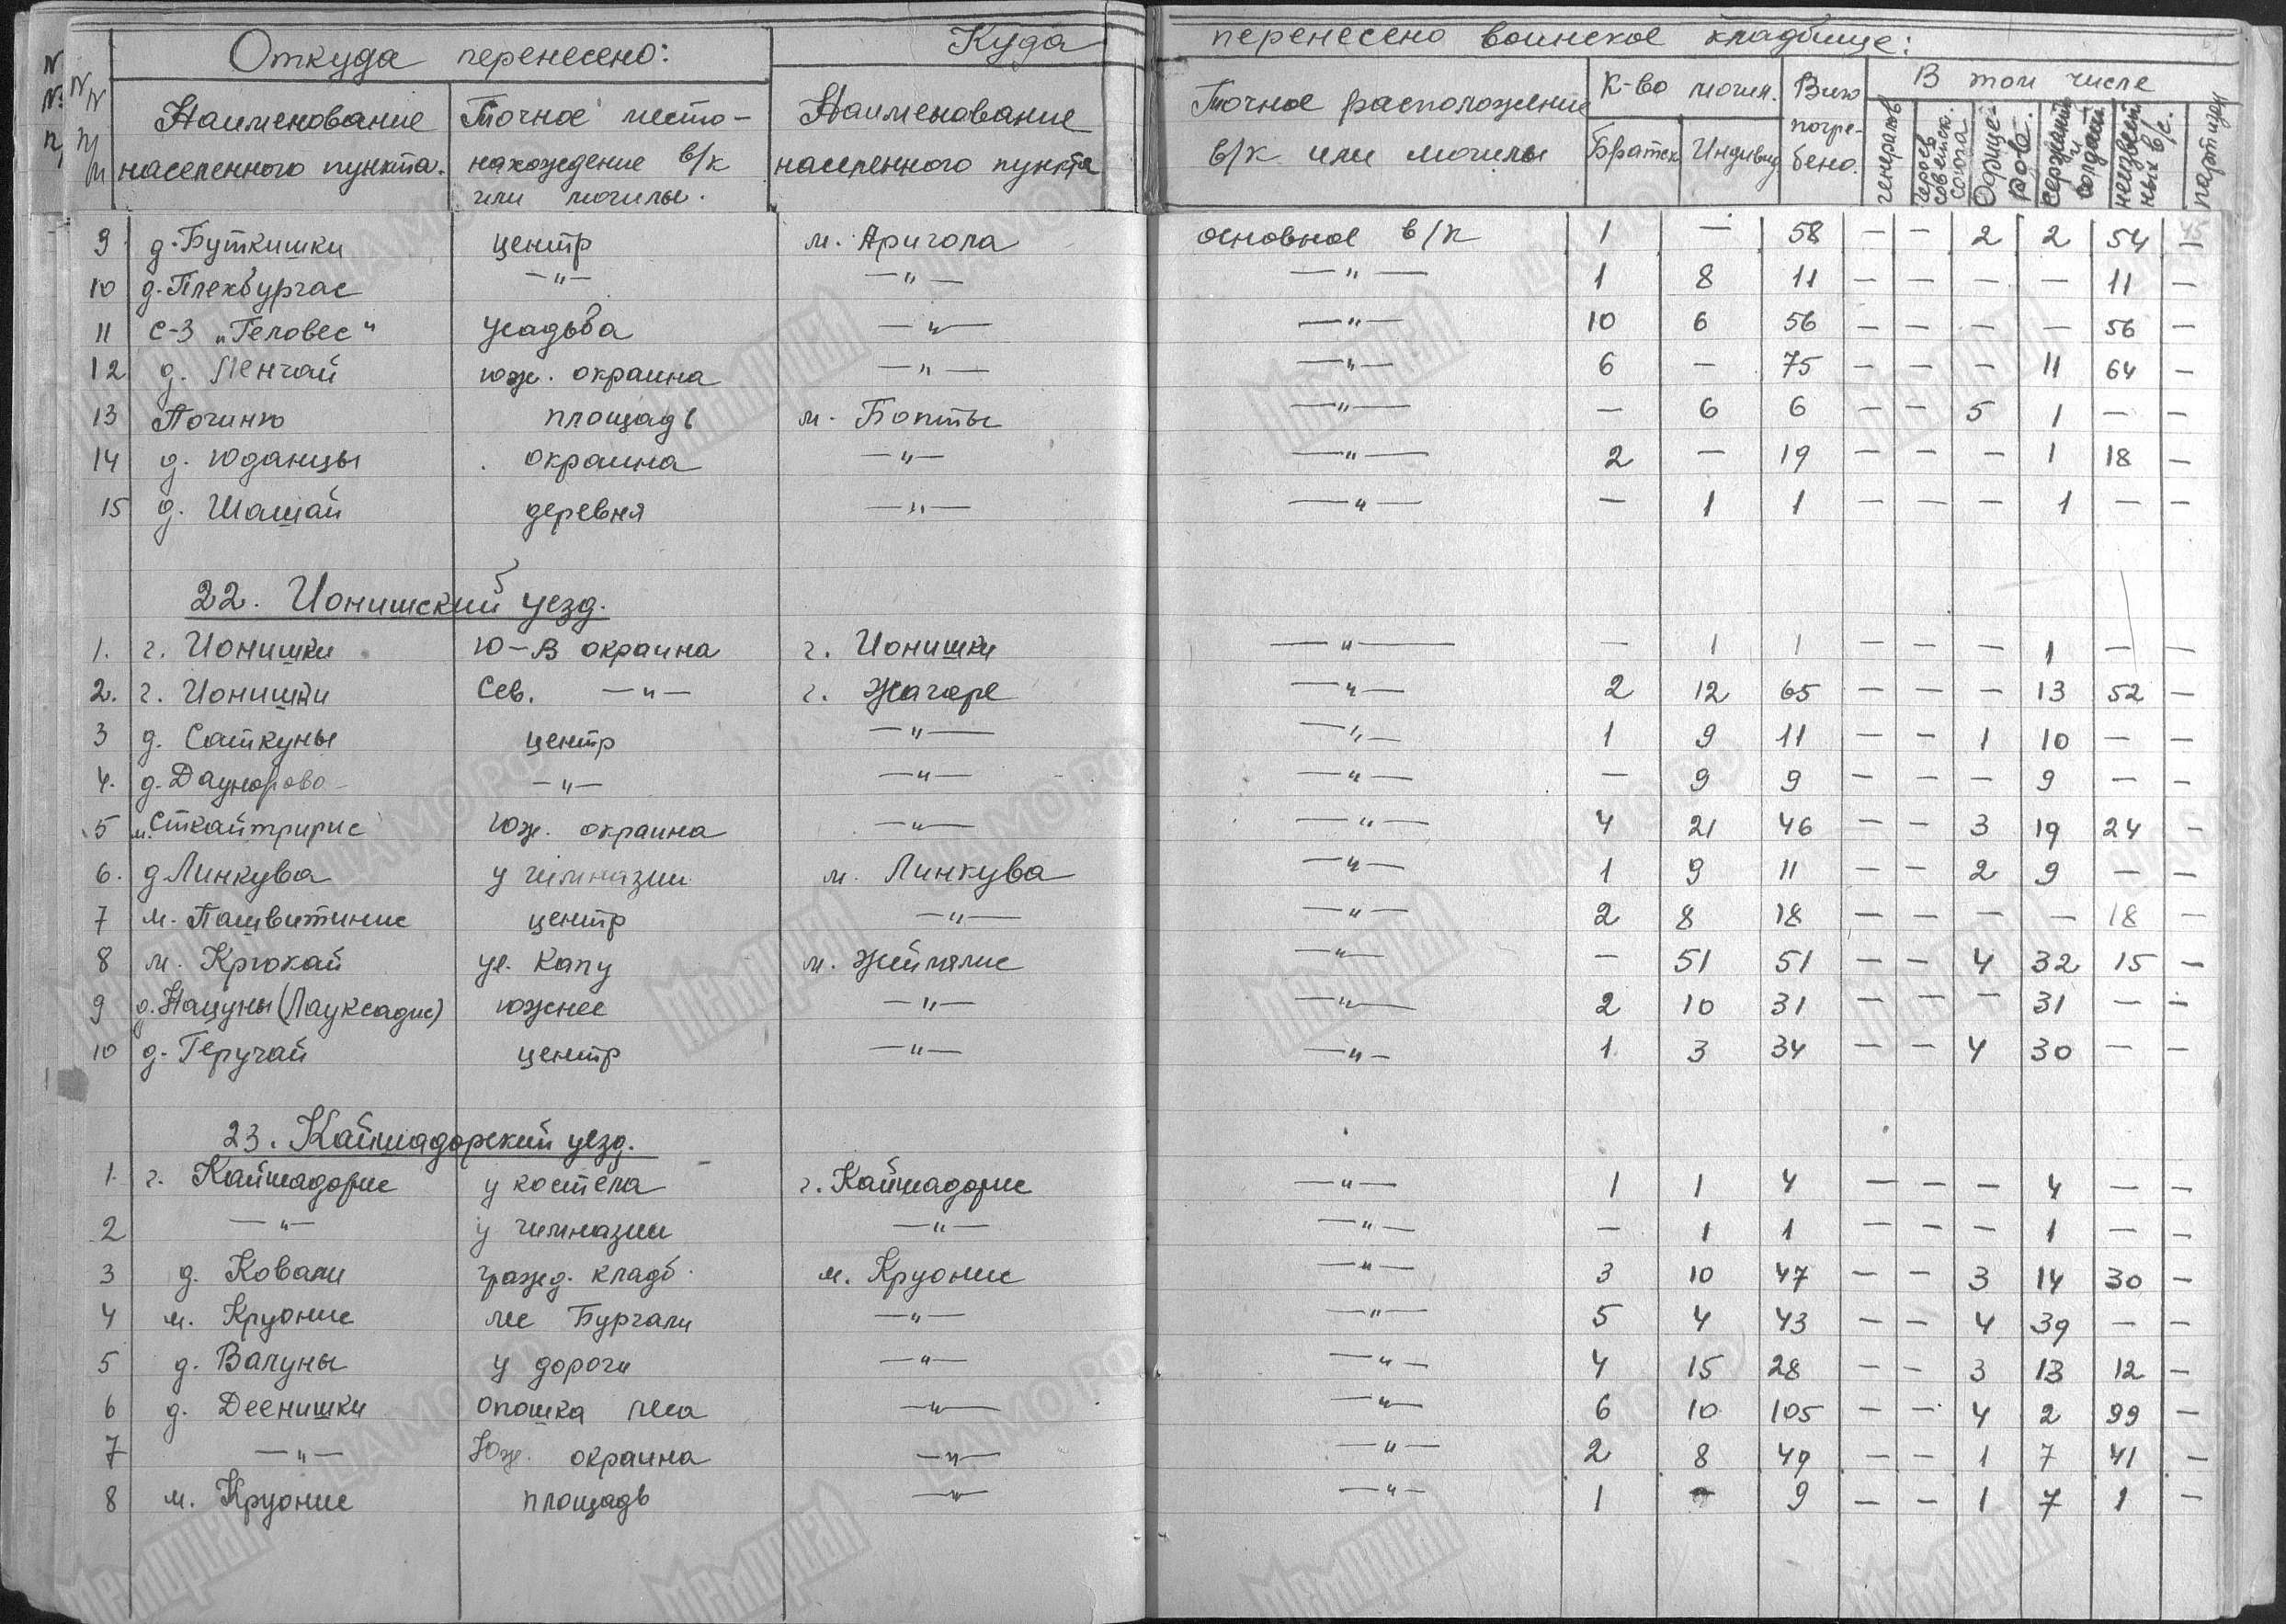 Откуда перенесено: Куда перенесено воинское кладбище:
№№ п/п Наименование населенного пункта. Точное местонахождение в/к или могилы. Наименование населенного пункта Точное расположение в/к или могилы К-во могил. Братск. Индивид. Всего погребено. В том числе генералов героев советск. союза Офицеров. сержант. и солдат неизвестных в/с. партизан
9 д. Буткишки центр м. Ариогола основное в/к 1 — 58 — — 2 2 54 —
10 д. Плекбургас —"— —"— —"— 1 8 11 — — — — 11 —
11 с-з „Геловес" усадьба —"— —"— 10 6 56 — — — — 56 —
12 д. Ленчай юж. окраина —"— —"— 6 — 75 — — — 11 64 —
13 Погиню площадь м. Бопты —"— — 6 6 — — 5 1 — —
14 д. Юданцы окраина —"— —"— 2 — 19 — — — 1 18 —
15 д. Шашай деревня —"— —"— — 1 1 — — — 1 — —
22. Ионишский уезд.
1. г. Ионишки Ю-В окраина г. Ионишки —"— — 1 1 — — — 1 — —
2. г. Ионишки Сев. —"— г. Жагаре —"— 2 12 65 — — — 13 52 —
3 д. Саткуны центр —"— —"— 1 9 11 — — 1 10 — —
4. д. Даунорово —"— —"— —"— — 9 9 — — — 9 — —
5 м. Скайтгирис Юж. окраина —"— —"— 4 21 46 — — 3 19 24 —
6. д Линкува у гимназии м. Линкува —"— 1 9 11 — — 2 9 — —
7 м. Пашвитинис центр —"— —"— 2 8 18 — — — — 18 —
8 м. Крюкай ул. Капу м. Жеймялис —"— — 51 51 — — 4 32 15 —
9 д. Нацуны (Лауксадис) южнее —"— —"— 2 10 31 — — — 31 — —
10 д. Геручай центр —"— —"— 1 3 34 — — 4 30 — —
23. Кайшадорский уезд.
1. г. Кайшадорис у костела г. Кайшадорис —"— 1 1 4 — — — 4 — —
2 —"— у гимназии —"— —"— — 1 1 — — — 1 — —
3 д. Ковали гражд. кладб. м. Круонис —"— 3 10 47 — — 3 14 30 —
4 м. Круонис лес Бургали —"— —"— 5 4 43 — — 4 39 — —
5 д. Валуны у дороги —"— —"— 4 15 28 — — 3 13 12 —
6 д. Деенишки опошка леса —"— —"— 6 10 105 — — 4 2 99 —
7 —"— Юж. окраина —"— —"— 2 8 49 — — 1 7 41 —
8 м. Круонис площадь —"— —"— 1 — 9 — — 1 7 1 —